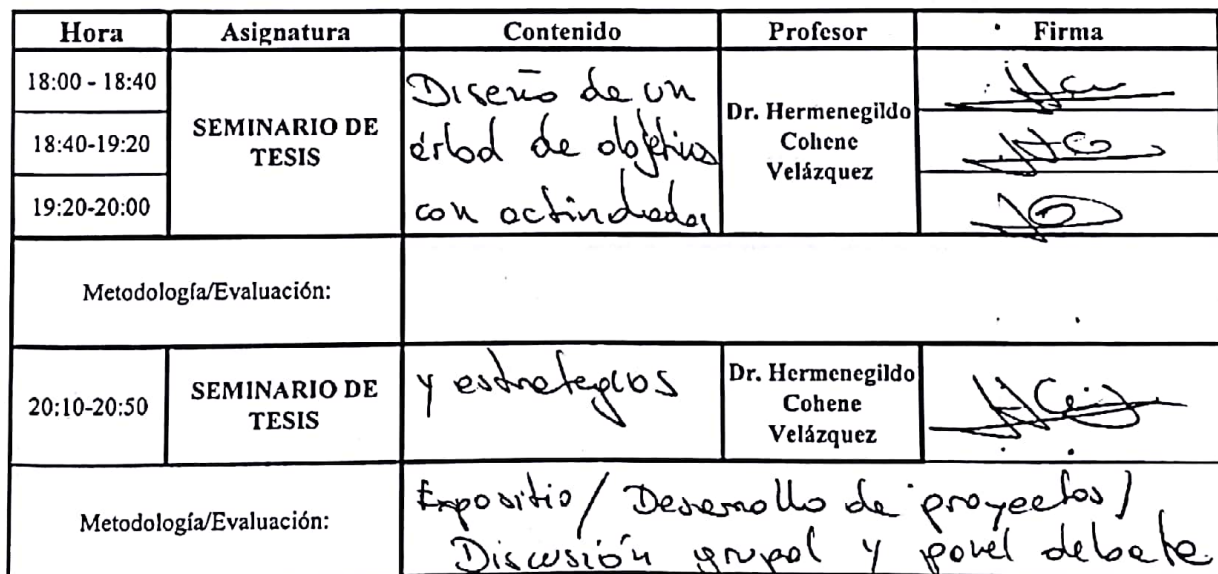 Hora Asignatura Contenido Profesor Firma
18:00 - 18:40
18:40-19:20
19:20-20:00
SEMINARIO DE
TESIS
Diseño de un
árbol de objetivos
con actividades
Dr. Hermenegildo
Cohene
Velázquez
Metodología/Evaluación:
20:10-20:50
SEMINARIO DE
TESIS
y estrategias
Dr. Hermenegildo
Cohene
Velázquez
Metodología/Evaluación:
Expositio/ Desarrollo de proyectos/
Discusión grupal y panel debate